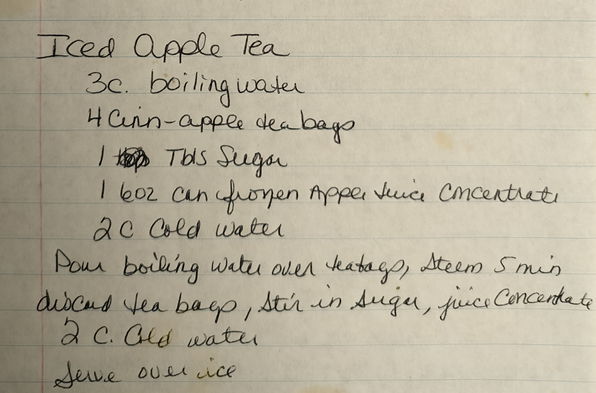 Iced Apple Tea
3c. boiling water
4 Cinn-apple tea bags
1 Tbls Sugar
1 6oz can frozen Apple Juice Concentrate
2 C Cold water
Pour boiling water over teabags, Steem 5 min
discard tea bags, Stir in Sugar, juice Concentrate
2 C. Cold water
Serve over ice